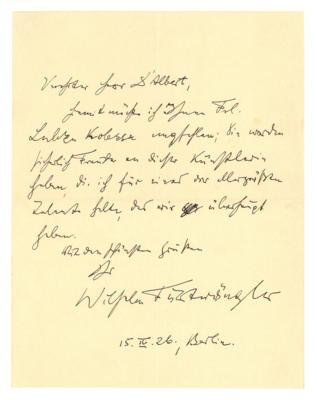 Verehrter Herr d'Albert,
hiermit möchte ich Ihnen Frl.
Lubka Kolessa empfehlen; Sie werden
sicherlich Freude an dieser Künstlerin
haben, die ich für eines der allergrößten
Talente halte, das wir überhaupt
haben.
Mit den schönsten Grüßen
Ihr
Wilhelm Furtwängler
15. IV. 26, Berlin.